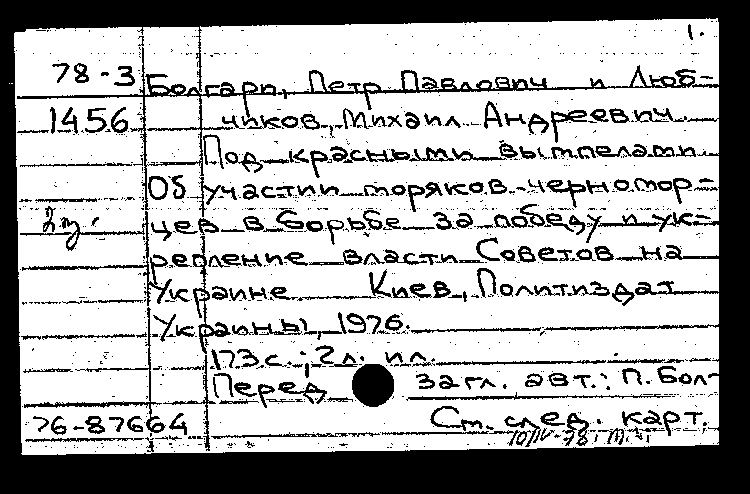 1.
78-3 Болгари, Петр Павлович и Люб-
1456 чиков, Михаил Андреевич.
Под красными вымпелами.
Об участии моряков-черномор-
цев в борьбе за победу и ук-
репление власти Советов на
Украине Киев, Политиздат
Украины, 1976.
173 с.; 2 л. ил.
Перед загл. авт.: П. Бол-
76-87664 См. след. карт.